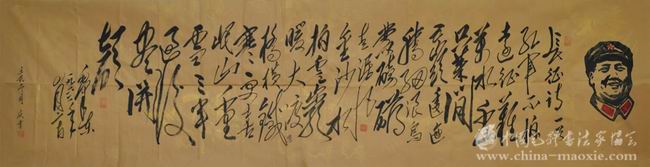 長征诗一首
红军不怕
远征难
万水千山
只等闲
五岭逶迤
腾细浪乌
蒙磅礴
走泥丸
金沙水
拍云崖
暖大渡
桥横铁索
寒更喜
岷山千里
雪三军
过后
尽开
颜
毛泽东
一九六二年
中国毛体书法家协会
www.china-maoxie.com